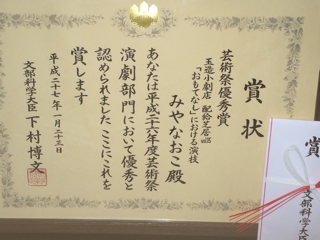 賞状
芸術祭優秀賞
玉造小劇店 配給芝居
「おもてなし」における演技
みやなおこ 殿
あなたは平成二六年度芸術祭
演劇部門において優秀と
認められました ここにこれを
賞します
平成二十七年一月二十三日
文部科学大臣 下村博文
賞
文部科学大臣